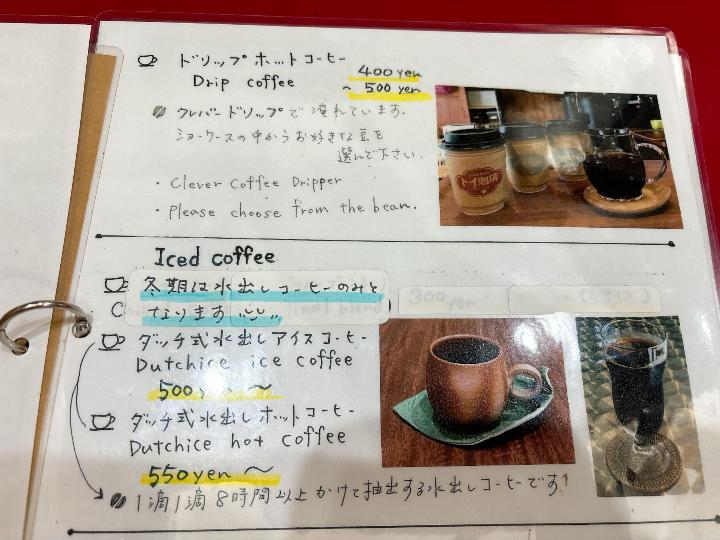 ドリップホットコーヒー
Drip coffee
400yen
~ 500 yen
クレバードリップで淹れています.
ショーケースの中からお好きな豆を
選んで下さい.
・Clever Coffee Dripper
・Please choose from the bean.
トイ珈琲
Iced coffee
冬期は水出しコーヒーのみと
なります
300
yen
ダッチ式水出しアイスコーヒー
Dutchice ice coffee
500 ~
ダッチ式水出しホットコーヒー
Dutchice hot coffee
550yen ~
1滴1滴8時間以上かけて抽出する水出しコーヒーです!